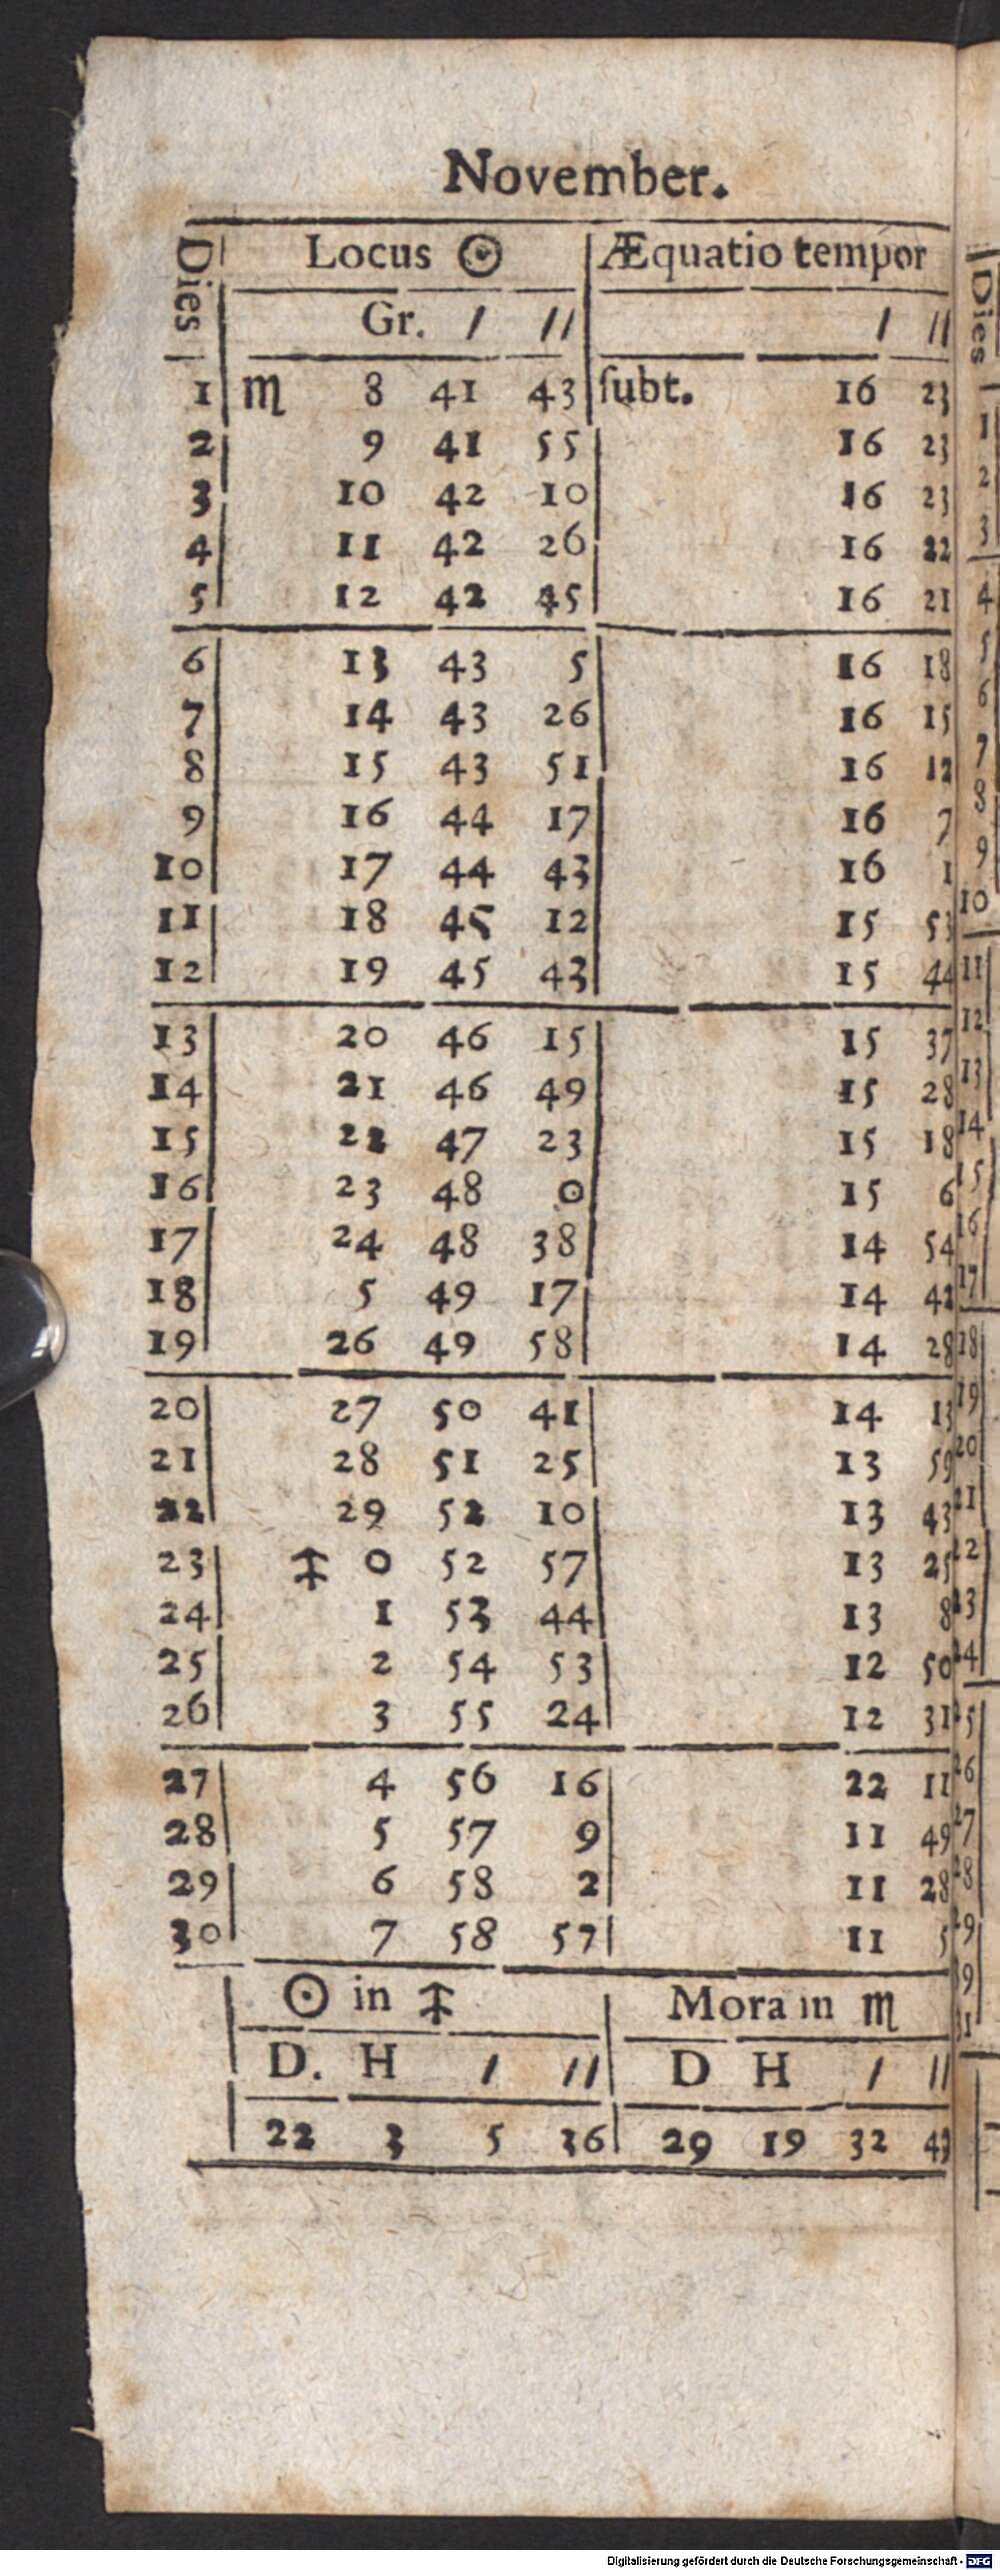 November.
Dies Locus ☉ Æquatio tempor
Gr. / // / //
1 ♏ 8 41 43 ſubt. 16 23
2 9 41 55 16 23
3 10 42 10 16 23
4 11 42 26 16 22
5 12 42 45 16 21
6 13 43 5 16 18
7 14 43 26 16 15
8 15 43 51 16 12
9 16 44 17 16 7
10 17 44 43 16 1
11 18 45 12 15 53
12 19 45 43 15 44
13 20 46 15 15 37
14 21 46 49 15 28
15 22 47 23 15 18
16 23 48 0 15 6
17 24 48 38 14 54
18 5 49 17 14 42
19 26 49 58 14 28
20 27 50 41 14 13
21 28 51 25 13 59
22 29 52 10 13 43
23 ♐ 0 52 57 13 25
24 1 53 44 13 8
25 2 54 53 12 50
26 3 55 24 12 31
27 4 56 16 22 11
28 5 57 9 11 49
29 6 58 2 11 28
30 7 58 57 11 5
☉ in ♐ Mora in ♏
D. H / // D H / //
22 3 5 36 29 19 32 43
Dies
1
2
3
4
5
6
7
8
9
10
11
12
13
14
15
16
17
18
19
20
21
22
23
24
25
26
27
28
29
31
Digitalisierung gefördert durch die Deutsche Forschungsgemeinschaft - DFG